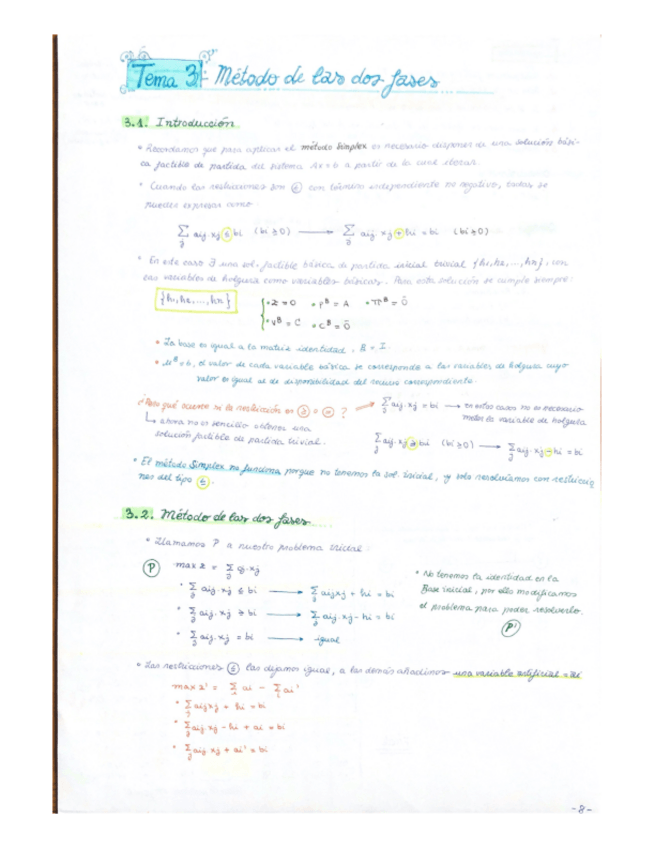 Tema 3: Método de las dos fases
3.1. Introducción
• Recordamos que para aplicar el método Simplex es necesario disponer de una solución bási-
ca factible de partida del sistema Ax=b a partir de la cual iterar.
• Cuando las restricciones son ≤ con término independiente no negativo, todas se
pueden expresar como
∑j aij·xj ≤ bi (bi ≥ 0) ⟶ ∑j aij·xj + hi = bi (bi ≥ 0)
• En este caso ∃ una sol. factible básica de partida inicial trivial {h1, h2, ..., hn}, con
las variables de holgura como variables básicas. Para esta solución se cumple siempre:
{h1, h2, ..., hn}
• z = 0 • pᴮ = A • πᴮ = 0
• vᴮ = C • cᴮ = 0
• La base es igual a la matriz identidad, B = I.
• uᴮ = b, el valor de cada variable básica se corresponde a las variables de holgura cuyo
valor es igual al de disponibilidad del recurso correspondiente.
¿Pero qué ocurre si la restricción es ≥ o = ?
↳ ahora no es sencillo obtener una
solución factible de partida trivial.
∑j aij·xj = bi ⟶ en estos casos no es necesario
meter la variable de holgura
∑j aij·xj ≥ bi (bi ≥ 0) ⟶ ∑j aij·xj - hi = bi
• El método Simplex no funciona porque no tenemos la sol. inicial, y solo resolvíamos con restriccio
nes del tipo ≤.
3.2. Método de las dos fases
• Llamamos P a nuestro problema inicial:
P max z = ∑j cj·xj
• ∑j aij·xj ≤ bi ⟶ ∑j aijxj + hi = bi
• ∑j aij·xj ≥ bi ⟶ ∑j aij·xj - hi = bi
• ∑j aij·xj = bi ⟶ igual
• No tenemos la identidad en la
Base inicial, por ello modificamos
el problema para poder resolverlo.
P'
• Las restricciones ≤ las dejamos igual, a las demás añadimos una variable artificial = ai
max z' = ∑i ai - ∑i ai'
• ∑j aijxj + hi = bi
• ∑j aij·xj - hi + ai = bi
• ∑j aij xj + ai' = bi
-8-